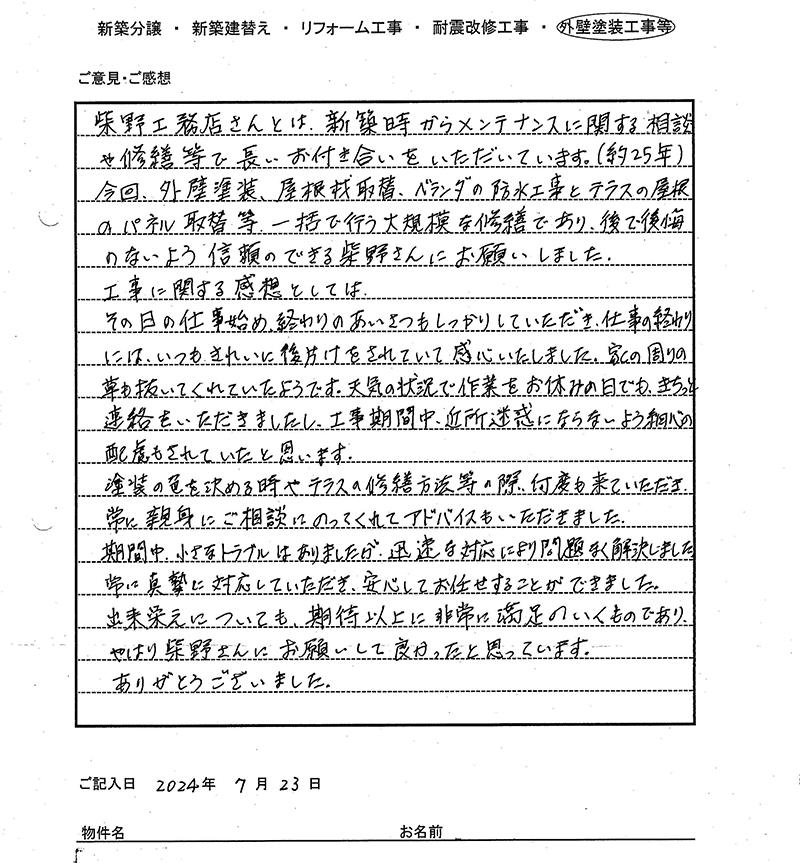 新築分譲 ・ 新築建替え ・ リフォーム工事 ・ 耐震改修工事 ・ 外壁塗装工事等
ご意見・ご感想
柴野工務店さんとは、新築時からメンテナンスに関する相談
や修繕等で長いお付き合いをいただいています。(約25年)
今回、外壁塗装、屋根材取替、ベランダの防水工事とテラスの屋根
のパネル取替等、一括で行う大規模な修繕であり、後で後悔
のないよう信頼のできる柴野さんにお願いしました。
工事に関する感想としては、
その日の仕事始め、終わりのあいさつもしっかりしていただき、仕事の終わり
には、いつもきれいに後片けをされていて感心いたしました。家の周りの
草も抜いてくれていたようです。天気の状況で作業をお休みの日でも、きちっと
連絡をいただきましたし、工事期間中、近所迷惑にならないよう細心の
配慮もされていたと思います。
塗装の色を決める時やテラスの修繕方法等の際、何度も来ていただき、
常に親身にご相談にのってくれてアドバイスもいただきました。
期間中、小さなトラブルはありましたが、迅速な対応により問題なく解決しました
常に真摯に対応していただき、安心してお任せすることができました。
出来栄えについても、期待以上に非常に満足のいくものであり、
やはり柴野さんにお願いして良かったと思っています。
ありがとうございました。
ご記入日 2024年 7月 23日
物件名 お名前